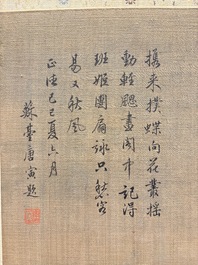 携来撲蝶向花叢揺
動軽颸畫閣中記得
班姬團扇詠只愁容
易又秋風
正德己巳夏六月
蘇臺唐寅題